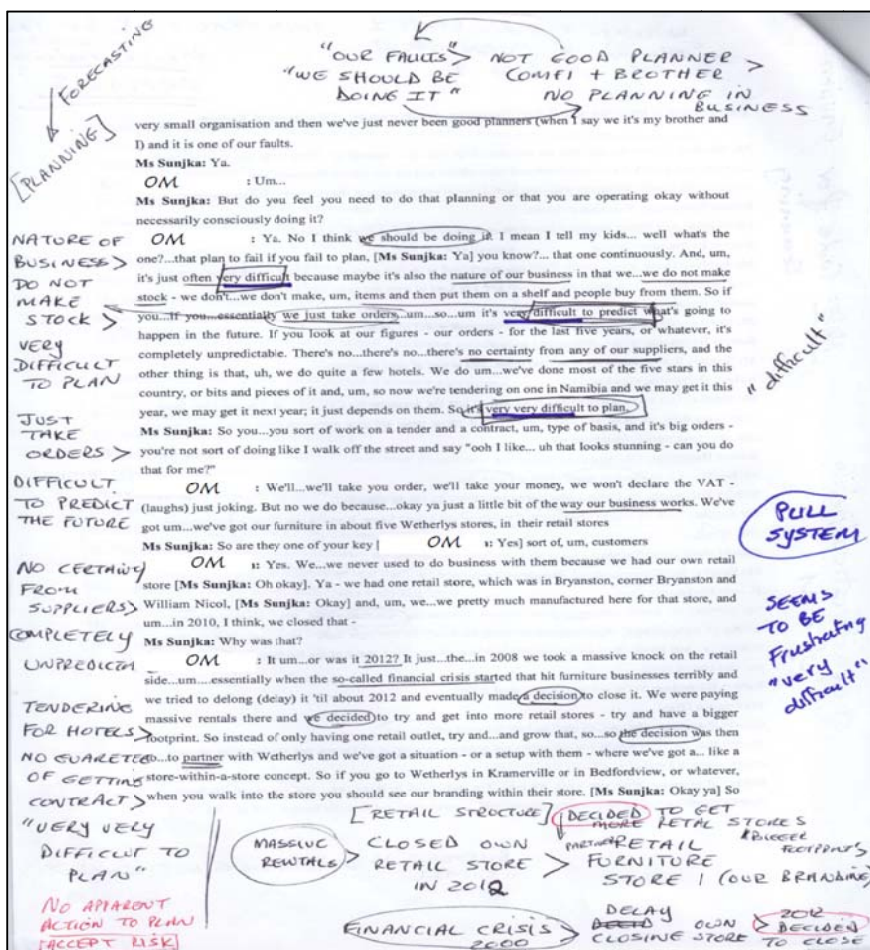 FORECASTING
[PLANNING]
"OUR FAULTS" > NOT GOOD PLANNER >
"WE SHOULD BE COMFI + BROTHER
DOING IT" NO PLANNING IN
BUSINESS
very small organisation and then we've just never been good planners (when I say we it's my brother and
I) and it is one of our faults.
Ms Sunjka: Ya.
OM : Um...
Ms Sunjka: But do you feel you need to do that planning or that you are operating okay without
necessarily consciously doing it?
OM : Ya. No I think we should be doing it. I mean I tell my kids... well what's the
one?...that plan to fail if you fail to plan, [Ms Sunjka: Ya] you know?... that one continuously. And, um,
it's just often very difficult because maybe it's also the nature of our business in that we...we do not make
stock - we don't...we don't make, um, items and then put them on a shelf and people buy from them. So if
you...If you...essentially we just take orders...um...so...um it's very difficult to predict what's going to
happen in the future. If you look at our figures - our orders - for the last five years, or whatever, it's
completely unpredictable. There's no...there's no...there's no certainty from any of our suppliers, and the
other thing is that, uh, we do quite a few hotels. We do um...we've done most of the five stars in this
country, or bits and pieves of it and, um, so now we're tendering on one in Namibia and we may get it this
year, we may get it next year; it just depends on them. So it's very very difficult to plan.
Ms Sunjka: So you...you sort of work on a tender and a contract, um, type of basis, and it's big orders -
you're not sort of doing like I walk off the street and say "ooh I like... uh that looks stunning - can you do
that for me?"
OM : We'll...we'll take you order, we'll take your money, we won't declare the VAT -
(laughs) just joking. But no we do because...okay ya just a little bit of the way our business works. We've
got um...we've got our furniture in about five Wetherlys stores, in their retail stores
Ms Sunjka: So are they one of your key [ OM : Yes] sort of, um, customers
OM : Yes. We...we never used to do business with them because we had our own retail
store [Ms Sunjka: Oh okay]. Ya - we had one retail store, which was in Bryanston, corner Bryanston and
William Nicol, [Ms Sunjka: Okay] and, um, we...we pretty much manufactured here for that store, and
um...in 2010, I think, we closed that -
Ms Sunjka: Why was that?
OM : It um...or was it 2012? It just...the...in 2008 we took a massive knock on the retail
side...um....essentially when the so-called financial crisis started that hit furniture businesses terribly and
we tried to delong (delay) it 'til about 2012 and eventually made a decision to close it. We were paying
massive rentals there and we decided to try and get into more retail stores - try and have a bigger
footprint. So instead of only having one retail outlet, try and...and grow that, so...so the decision was then
to...to partner with Wetherlys and we've got a situation - or a setup with them - where we've got a... like a
store-within-a-store concept. So if you go to Wetherlys in Kramerville or in Bedfordview, or whatever,
when you walk into the store you should see our branding within their store. [Ms Sunjka: Okay ya] So
NATURE OF
BUSINESS >
DO NOT
MAKE
STOCK >
VERY
DIFFICULT
TO PLAN
JUST
TAKE
ORDERS >
DIFFICULT
TO PREDICT
THE FUTURE
NO CERTAINTY
FROM
SUPPLIERS >
COMPLETELY
UNPREDICTA
TENDERING
FOR HOTELS >
NO GUARETEE
OF GETTING
CONTRACT >
"VERY VERY
DIFFICULT TO
PLAN"
NO APPARENT
ACTION TO PLAN
[ACCEPT RISK]
"difficult"
PULL
SYSTEM
SEEMS
TO BE
Frustrating
"very
difficult"
[RETAIL STRUCTURE] DECIDED TO GET
MORE RETAL STORES
& BIGGER
FOOTPRINTS
MASSIVE
RENTALS > CLOSED OWN
RETAIL STORE
IN 2012
> PARTNER RETAIL
FURNITURE
STORE / (OUR BRANDING)
FINANCIAL CRISIS
2000
DELAY
OWN
CLOSING STORE
> 2012
DECIDED
TO CLOSE